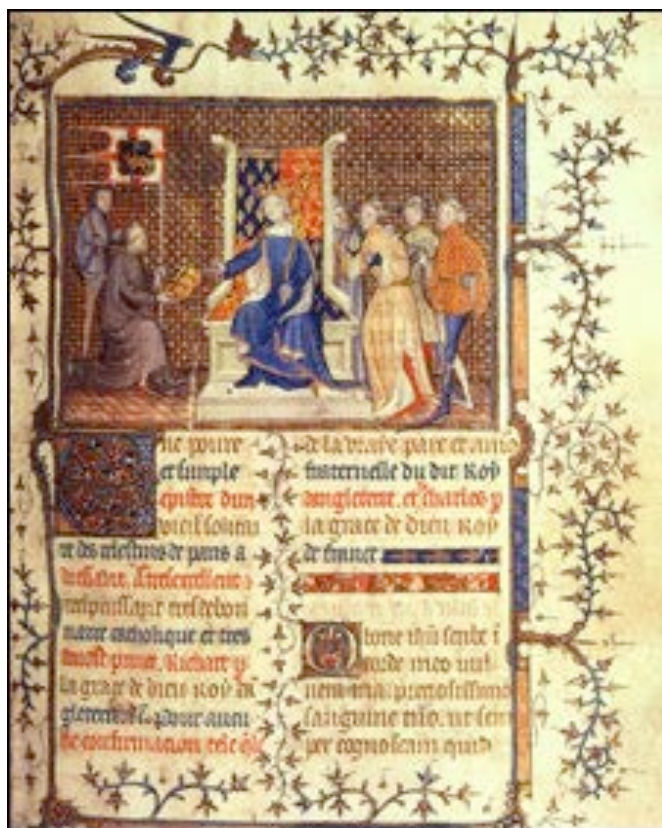 ne povre
et simple
epistre dun
vieil solitai
re des celestins de paris a
dressant. A tresexcellent
trespuissant tresdebon
naire catholique et tres
devost prince. Richart p
la grace de dieu Roy dan
gleterre &c. pour aucu
ne confirmacion tele qle
de la vraye paix et amo
fraternelle du dit Roy
dangleterre. et charles p
la grace de dieu Roy
de france
O bone ihu scribe i
corde meo vul
nera tua preciosissimo
sanguine tuo. ut sem
per cognoscam quid